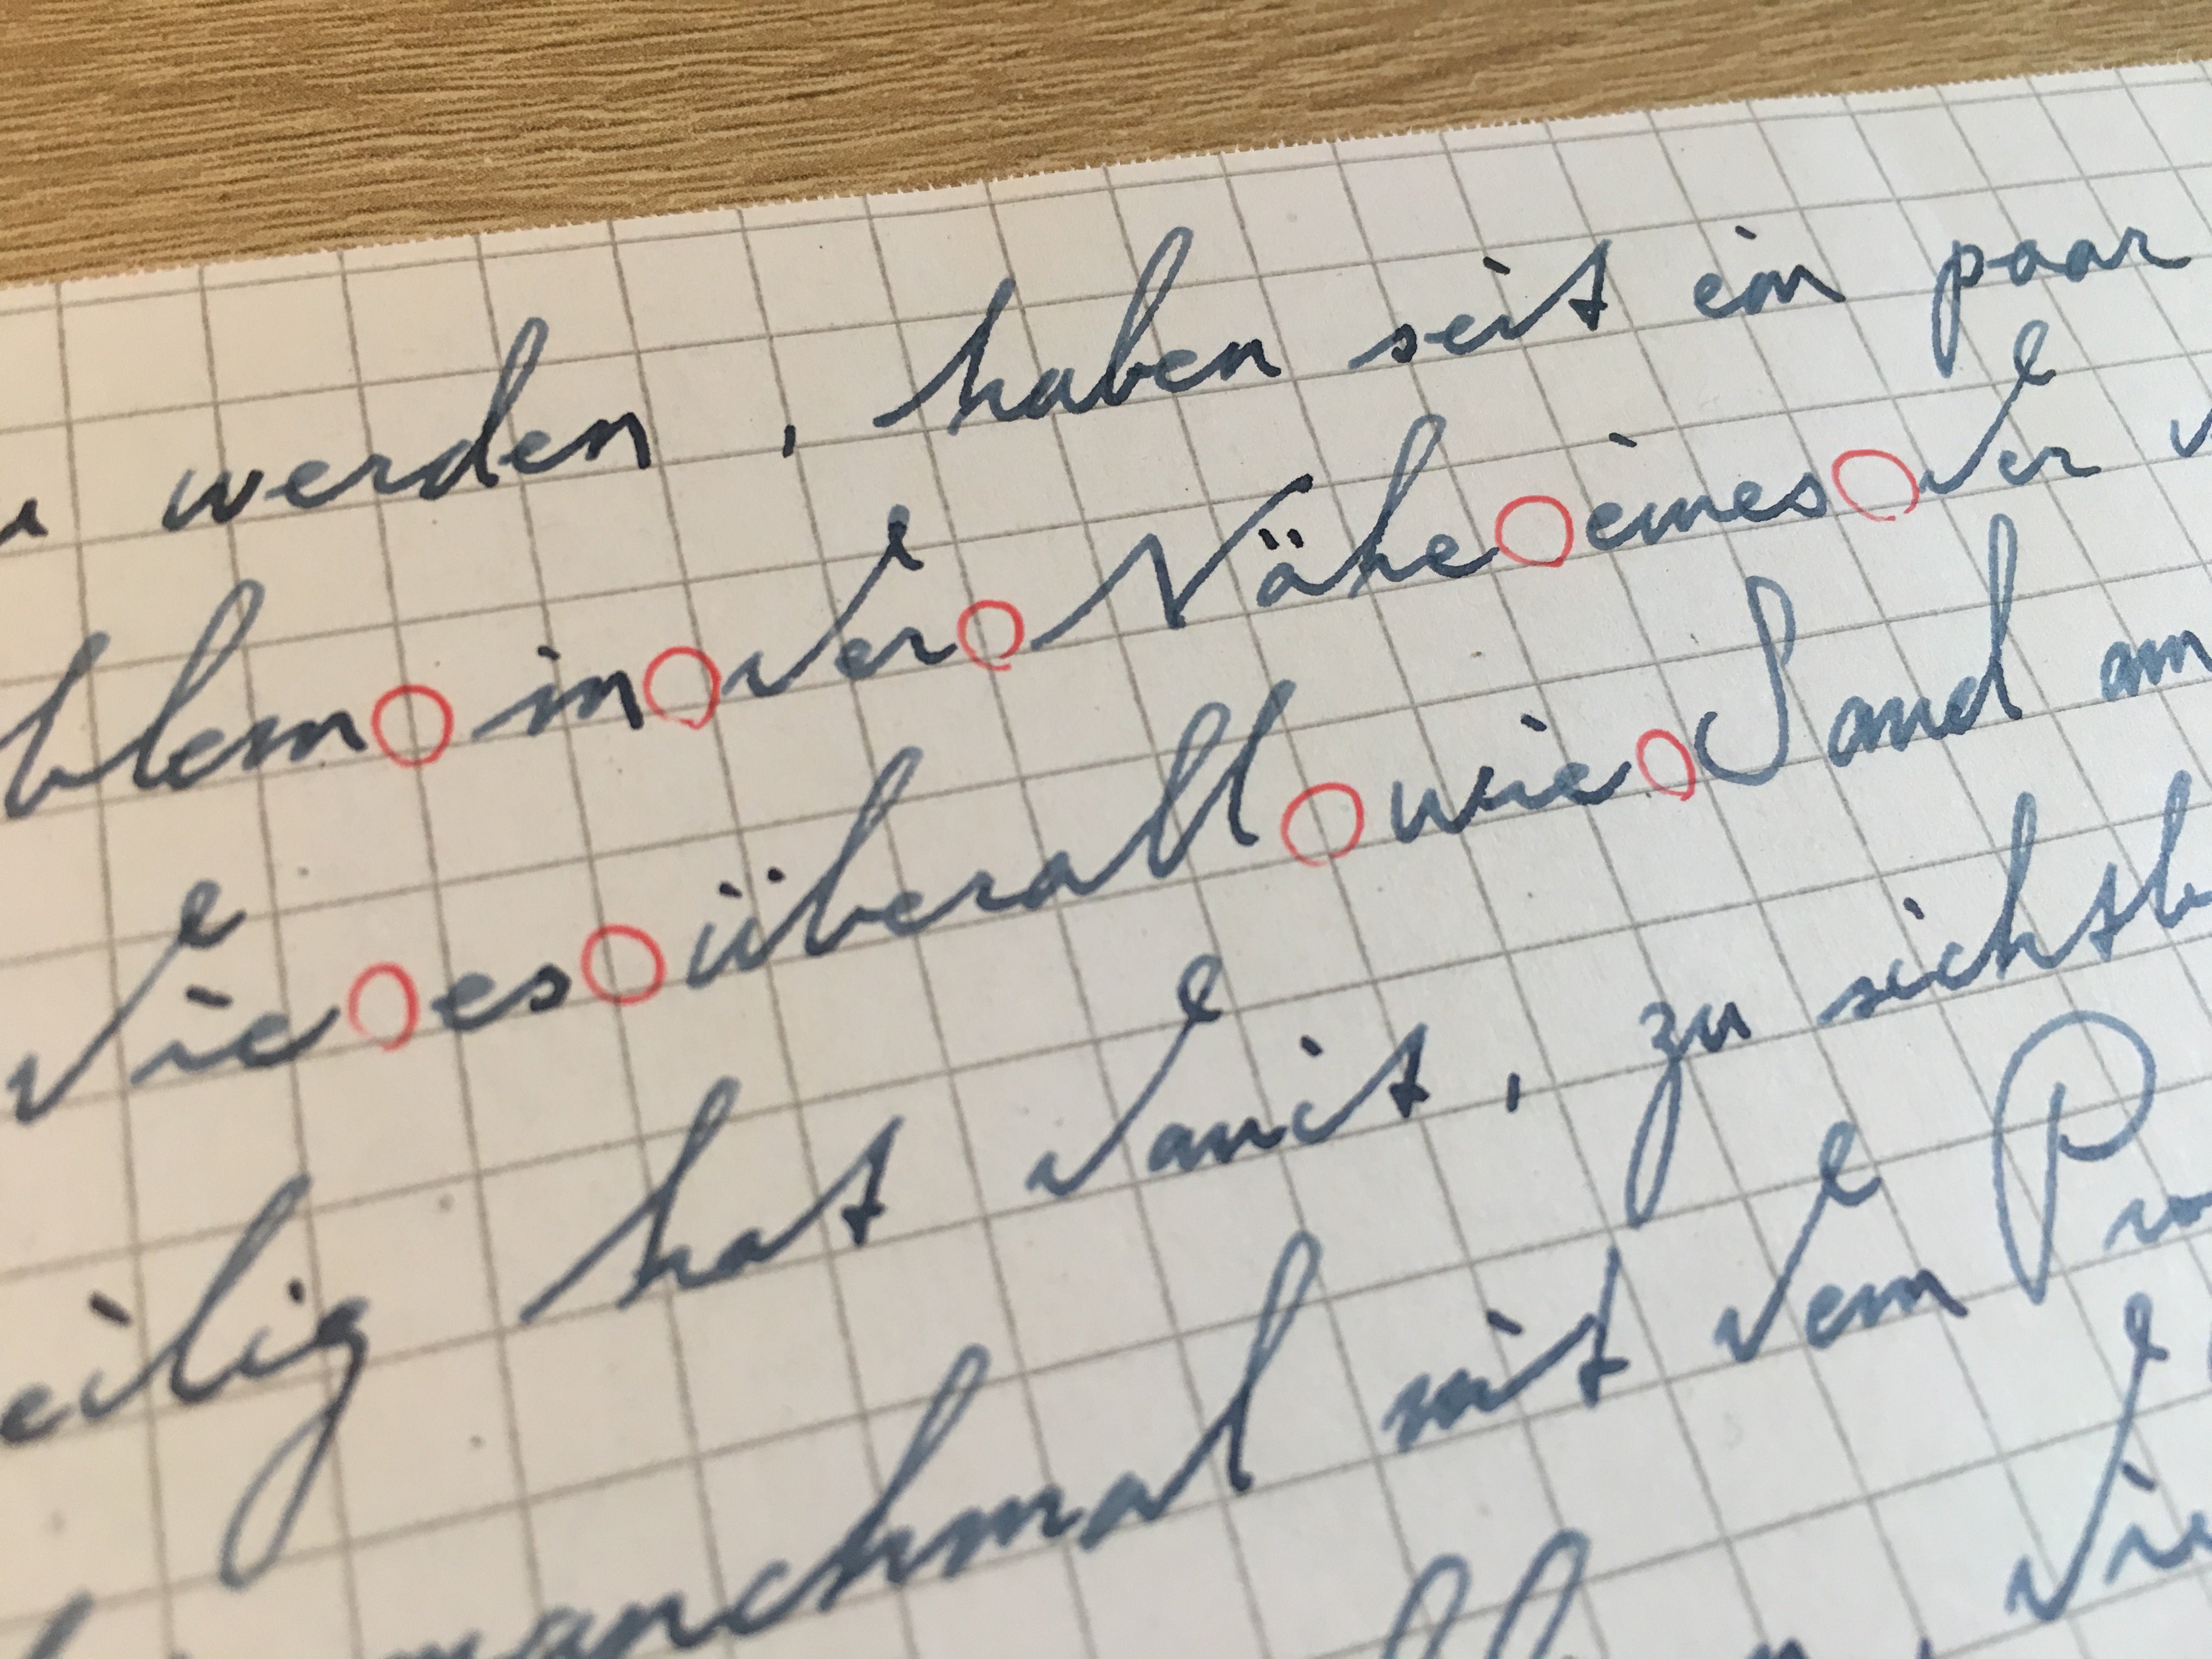 werden, haben seit ein paar
blem in der Nähe eines der
die es überall wie Sand am
eilig hat damit, zu sichtb
manchmal mit dem Pro
die